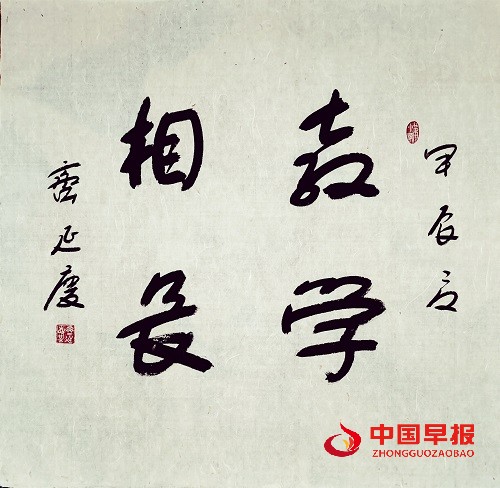 甲辰
教学
相长
齊延慶
中国早报
ZHONGGUOZAOBAO